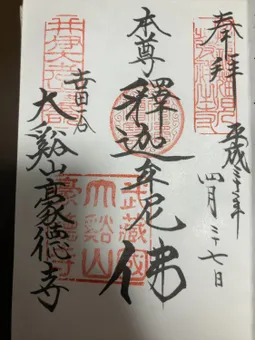 奉拜
平成三十年
四月二十七日
本尊
釋迦牟尼佛
世田谷
大谿山豪德寺
武藏國
大谿山
豪德寺